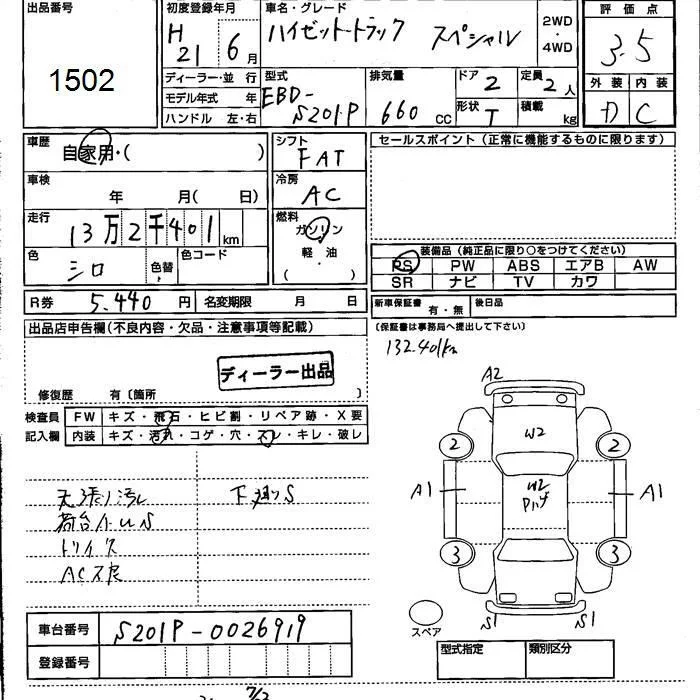 出品番号
1502
初度登録年月
H 21 6月
車名・グレード
ハイゼットトラック スペシャル
2WD
・
4WD
評価点
3.5
外装 内装
D C
ディーラー・並 行
モデル年式 年
ハンドル 左・右
型式
EBD-
S201P
排気量
660 cc
ドア 2
形状 T
定員 2人
積載 kg
車歴
自家用・( )
車検
年 月( 日)
走行
13万2千401km
色
シロ
色替
色コード
シフト
FAT
冷房
AC
燃料
ガソリン
軽・油
( )
セールスポイント(正常に機能するものに限ります)
装備品(純正品に限り○をつけてください)
PS PW ABS エアB AW
SR ナビ TV カワ
R券 5.440円 名変期限 月 日
新車保証書 有・無 後日品
(保証書は事務局へ提出して下さい)
出品店申告欄(不良内容・欠品・注意事項等記載)
132.401km
ディーラー出品
修復歴 有〔箇所 〕
検査員 FW キズ・飛石・ヒビ割・リペア跡・X要
記入欄 内装 キズ・汚れ・コゲ・穴・スレ・キレ・破レ
天張り汚レ 下廻りS
荷台小US
AC不良
A2
W2
2 2
W2
A1 A1
3 3
S1 S1
スペア
車台番号 S201P-0026919
登録番号
型式指定 類別区分
7/2